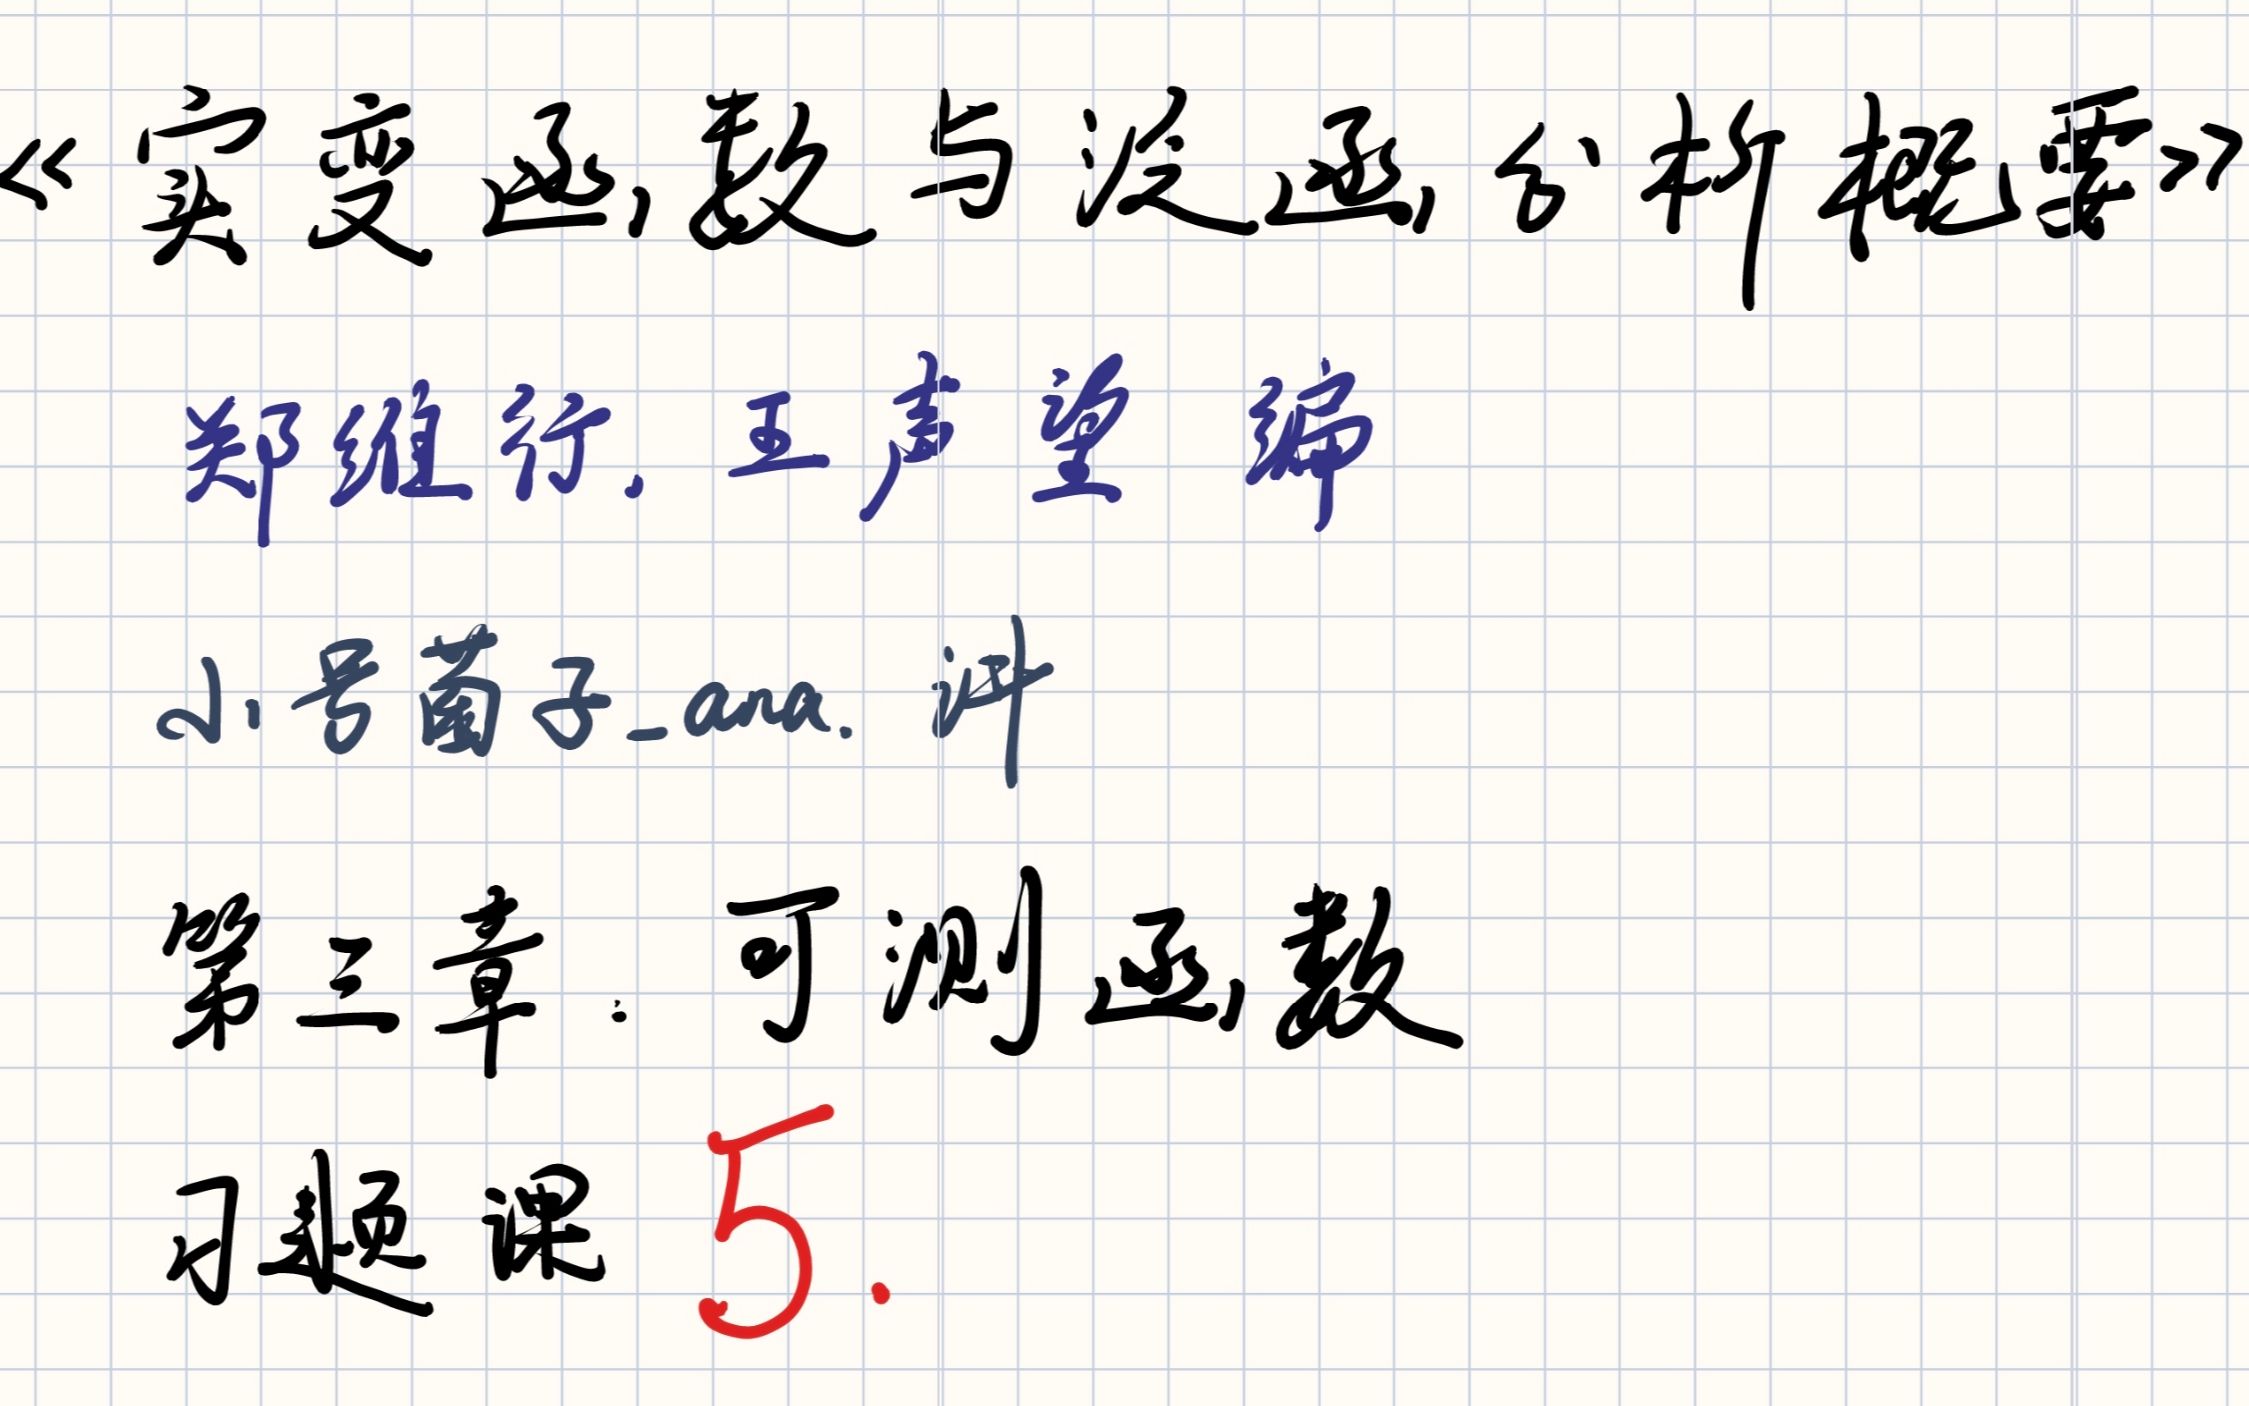 《实变函数与泛函分析概要》
郑维行，王声望 编
小号菌子_ana. 讲
第三章：可测函数
习题课 5.